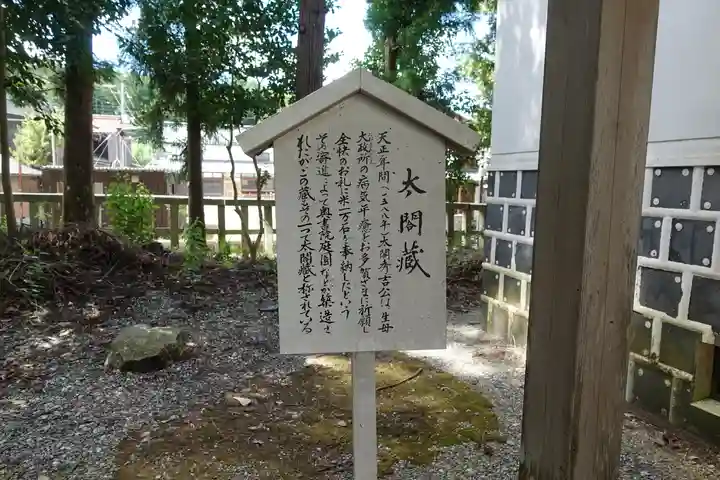 太閤蔵
天正年間(一五八八年)太閤秀吉公は、生母
大政所の病気平癒をお多賀さまに祈願し
全快のお礼に米一万石を奉納したという
その御造によって奥書院庭園などが築造さ
れたがこの蔵もその一つで太閤蔵と称されている